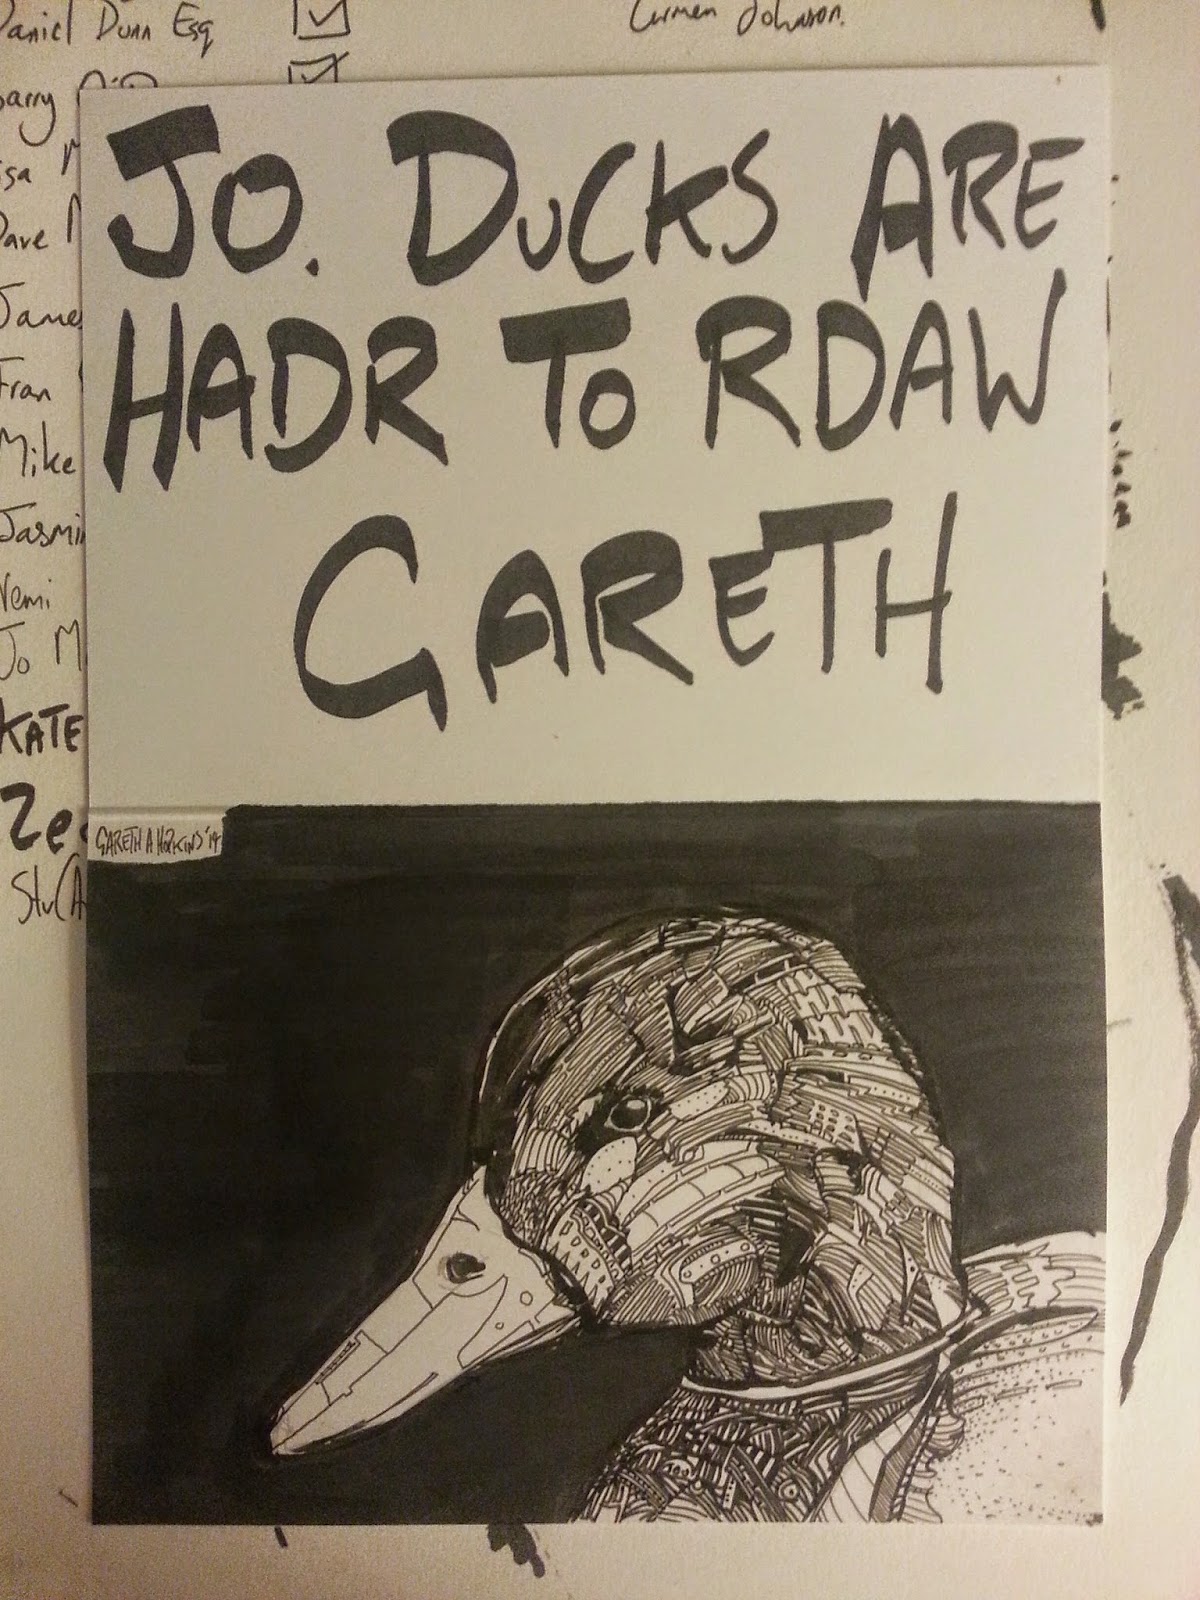 Daniel Dunn Esq
Carmen Johnson.
Barry
Lisa M
Dave
James
Fran
Mike
Jasmin
Nemi
Jo M
KATE
Stu(A
JO. DUCKS ARE
HADR TO RDAW
GARETH
GARETH A HOPKINS '14